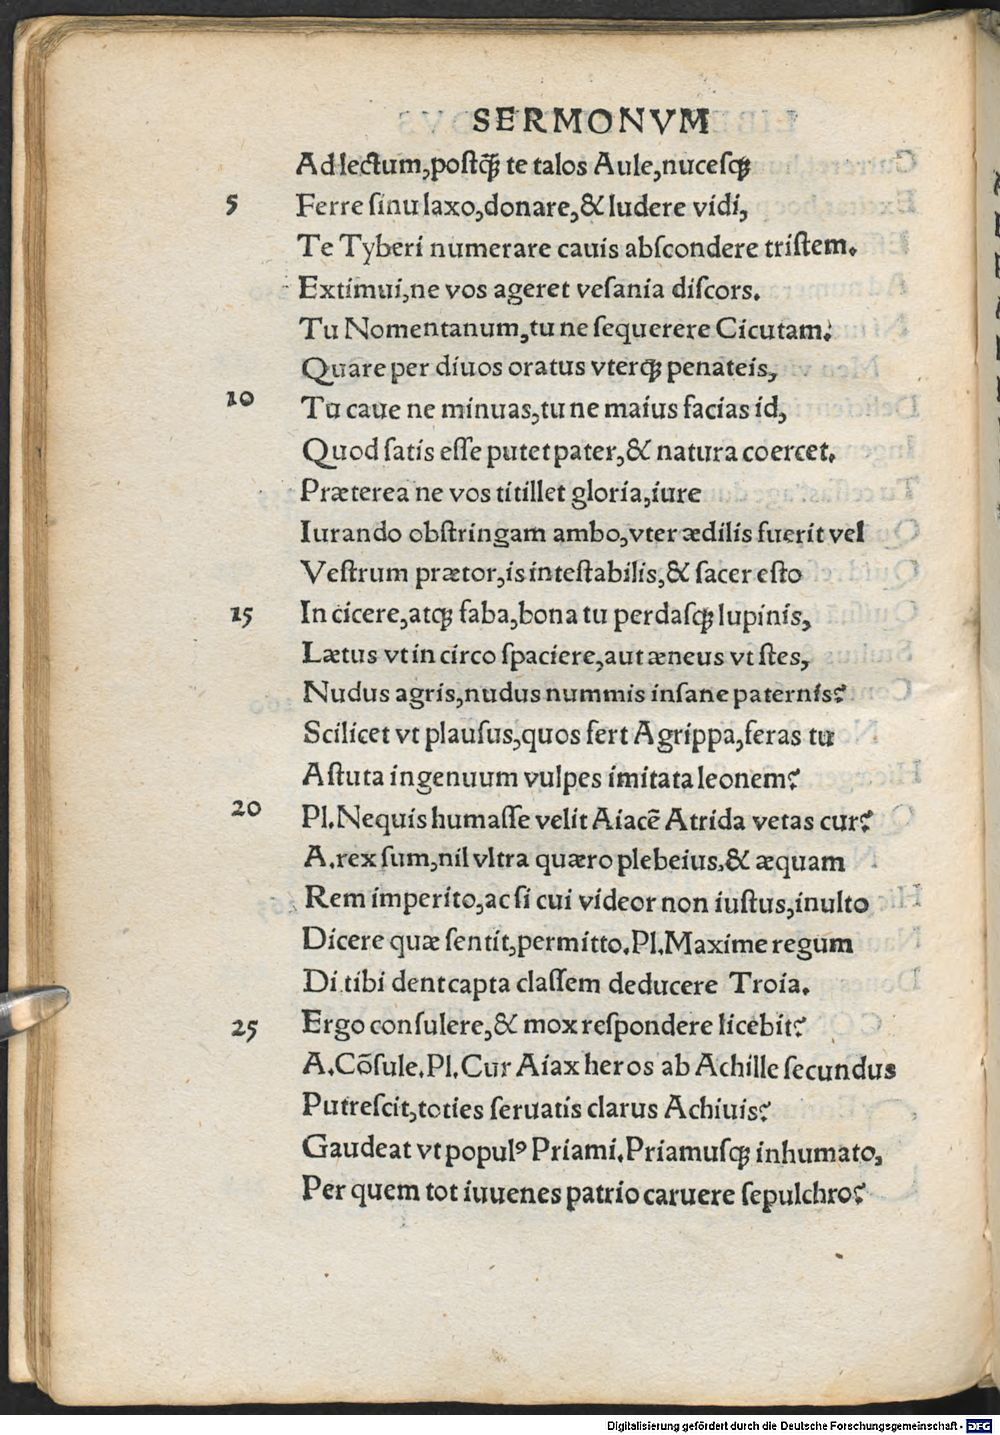 SERMONVM
Ad lectum,poſtq̃ te talos Aule,nuceſqꝫ
5 Ferre ſinu laxo,donare,& ludere vidi,
Te Tyberi numerare cauis abſcondere triſtem.
Extimui,ne vos ageret veſania diſcors.
Tu Nomentanum,tu ne ſequerere Cicutam?
Quare per diuos oratus vterqꝫ penateis,
10 Tu caue ne minuas,tu ne maius facias id,
Quod ſatis eſſe putet pater,& natura coercet.
Præterea ne vos titillet gloria,iure
Iurando obſtringam ambo,vter ædilis fuerit vel
Veſtrum prætor,is inteſtabilis,& ſacer eſto
15 In cicere,atqꝫ faba,bona tu perdaſqꝫ lupinis,
Lætus vt in circo ſpaciere,aut æneus vt ſtes,
Nudus agris,nudus nummis inſane paternis?
Scilicet vt plauſus,quos fert Agrippa,feras tu
Aſtuta ingenuum vulpes imitata leonem?
20 Pl.Nequis humaſſe velit Aiacē Atrida vetas cur?
A.rex ſum,nil vltra quæro plebeius.& æquam
Rem imperito,ac ſi cui videor non iuſtus,inulto
Dicere quæ ſentit,permitto.Pl.Maxime regum
Di tibi dent capta claſſem deducere Troia.
25 Ergo conſulere,& mox reſpondere licebit?
A.Cōſule.Pl.Cur Aiax heros ab Achille ſecundus
Putreſcit,toties ſeruatis clarus Achiuis?
Gaudeat vt populꝰ Priami.Priamuſqꝫ inhumato,
Per quem tot iuuenes patrio caruere ſepulchro?
Digitalisierung gefördert durch die Deutsche Forschungsgemeinschaft - DFG